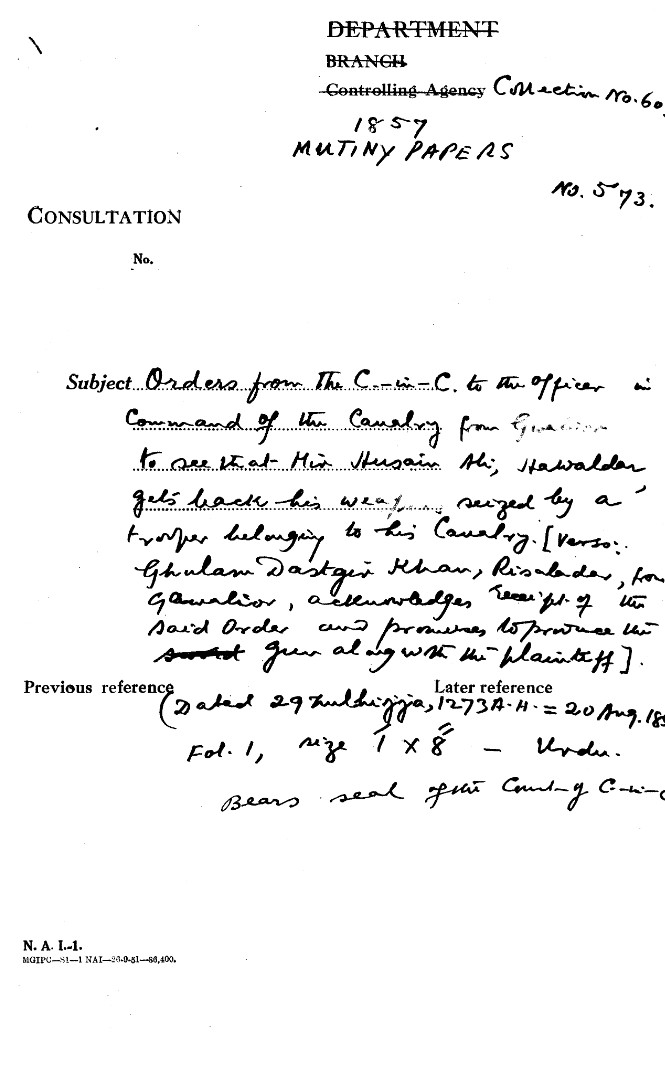 DEPARTMENT
BRANCH
Controlling Agency Collection No. 60
1857
MUTINY PAPERS
No. 573.
CONSULTATION
No.
Subject Orders from the C.-in-C. to the officer in
Command of the Cavalry from Gwalior
to see that Mir Husain Ali, Hawaldar
gets back his weap seized by a
trooper belonging to his Cavalry. [Verso:
Ghulam Dastgir Khan, Risaladar, from
Gawalior, acknowledges receipt of the
said Order and promises to produce the
gun along with the plaintiff].
Previous reference Later reference
(Dated 29 Zulhijja, 1273 A.H. = 20 Aug. 185
Fol. 1, size 7" × 8" – Urdu.
Bears seal of the Court of C-in-C
N. A. I.-1.
MGIPC—S1—1 NAI—26-9-51—86,400.